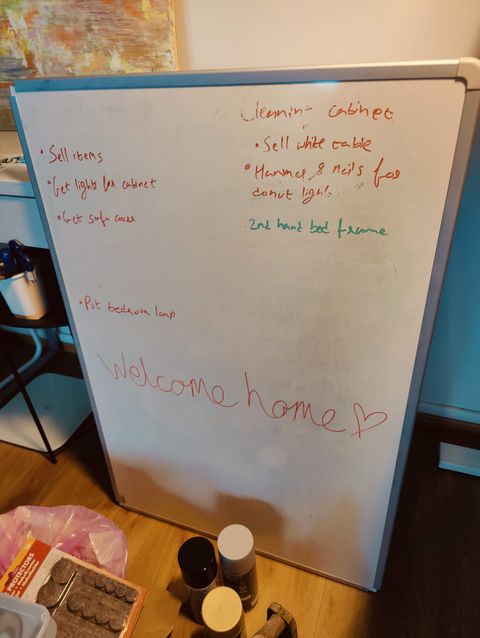 Cleaning cabinet
• Sell white table
• Hammer & nails for
donut lights
2nd hand bed frame
• Sell items
• Get lights for cabinet
• Get sofa cover
• Put bedroom lamp
Welcome home ♡
PROTECTORS